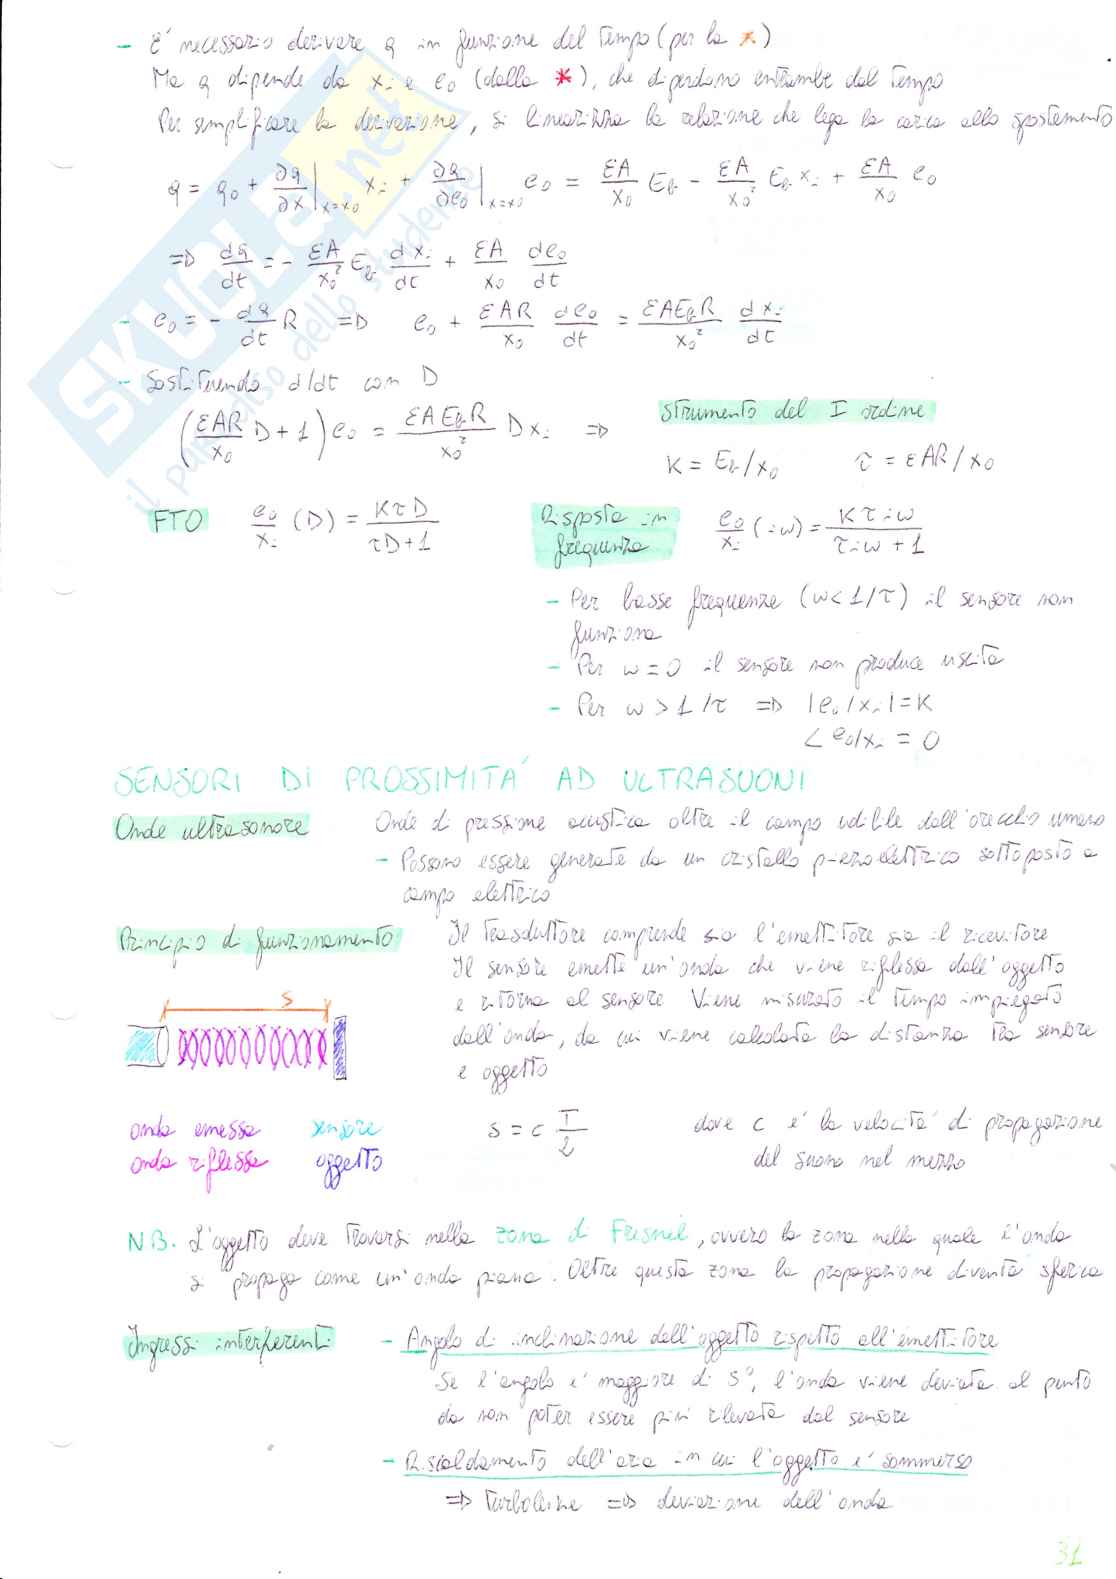 - E' necessario derivare q in funzione del tempo (per la *)
Ma q dipende da xi e e0 (dalla *), che dipendono entrambe dal tempo
Per semplificare la derivazione, si linearizza la relazione che lega la carica allo spostamento
q = q0 + ∂q/∂x |x=x0 xi + ∂q/∂e0 |x=x0 e0 = εA/x0 Eb - εA/x0² Eb xi + εA/x0 e0
=> dq/dt = - εA/x0² Eb dxi/dt + εA/x0 de0/dt
- e0 = - dq/dt R => e0 + εAR/x0 de0/dt = εAEbR/x0² dxi/dt
- Sostituendo d/dt con D
(εAR/x0 D + 1) e0 = εAEbR/x0² D xi =>
Strumento del I ordine
K = Eb/x0 τ = εAR/x0
FTO e0/xi (D) = KτD/τD+1
Risposta in frequenza e0/xi (iw) = Kτiw/τiw+1
- Per basse frequenze (w<1/τ) il sensore non
funziona
- Per w=0 il sensore non produce uscita
- Per w>1/τ => |e0/xi| = K
∠ e0/xi = 0
SENSORI DI PROSSIMITA' AD ULTRASUONI
Onde ultrasonore Onde di pressione acustica oltre il campo udibile dall'orecchio umano
- Possono essere generate da un cristallo piezoelettrico sottoposto a
campo elettrico
Principio di funzionamento Il trasduttore comprende sia l'emettitore sia il ricevitore
Il sensore emette un'onda che viene riflessa dall'oggetto
e ritorna al sensore Viene misurato il tempo impiegato
dall'onda, da cui viene calcolata la distanza tra sensore
e oggetto
s
onda emessa sensore
onda riflessa oggetto
s = c T/2 dove c e' la velocità di propagazione
del suono nel mezzo
NB. L'oggetto deve trovarsi nella zona di Fresnel, ovvero la zona nella quale l'onda
si propaga come un'onda piana. Oltre questa zona la propagazione diventa sferica
Ingressi interferenti - Angolo di inclinazione dell'oggetto rispetto all'emettitore
Se l'angolo e' maggiore di 5°, l'onda viene deviata al punto
da non poter essere più rilevata dal sensore
- Riscaldamento dell'aria in cui l'oggetto e' sommerso
=> turbolenze => deviazione dell'onda
31
SKUOLA.net
il paradiso dello studente